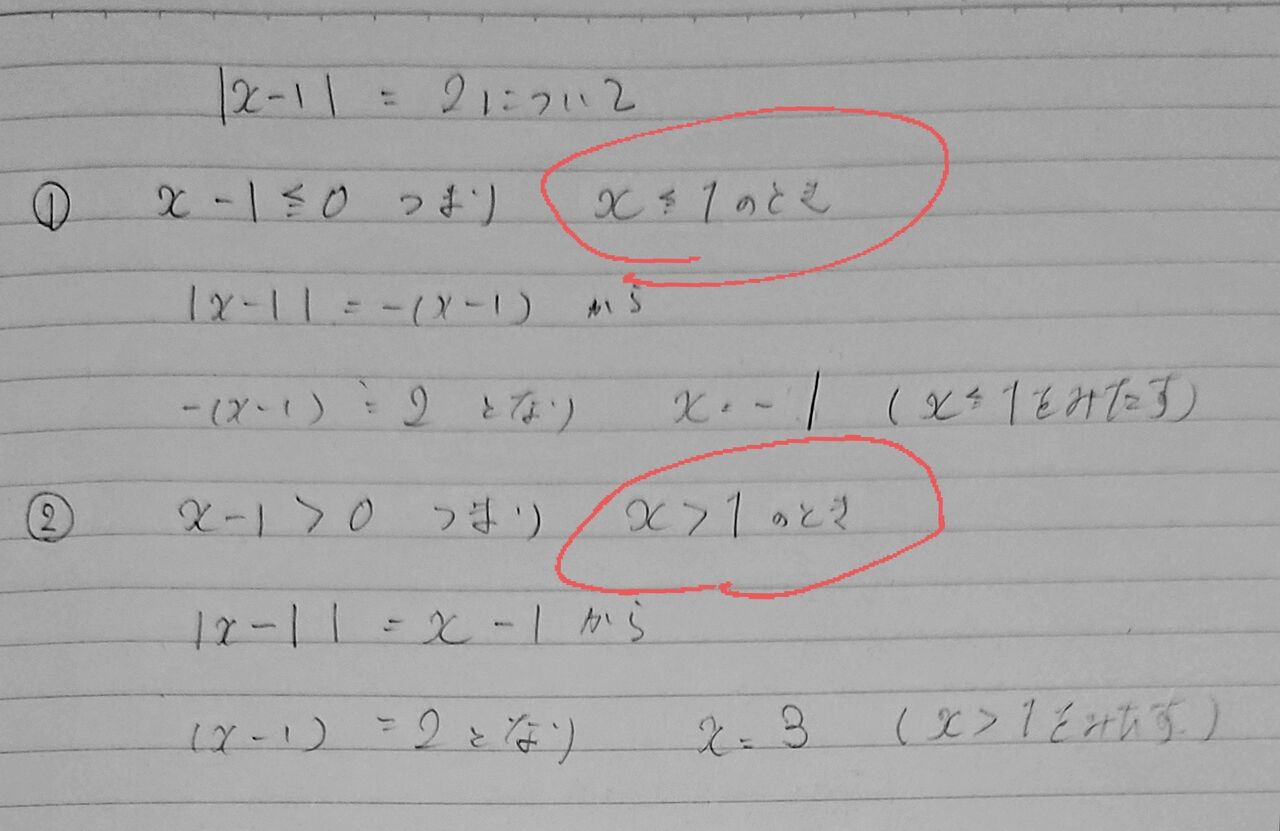 |x-1| = 2について
① x-1≦0 つまり x≦1のとき
|x-1| = -(x-1) から
-(x-1) = 2 となり x=-1 (x≦1をみたす)
② x-1>0 つまり x>1のとき
|x-1| = x-1 から
(x-1) = 2 となり x=3 (x>1をみたす)